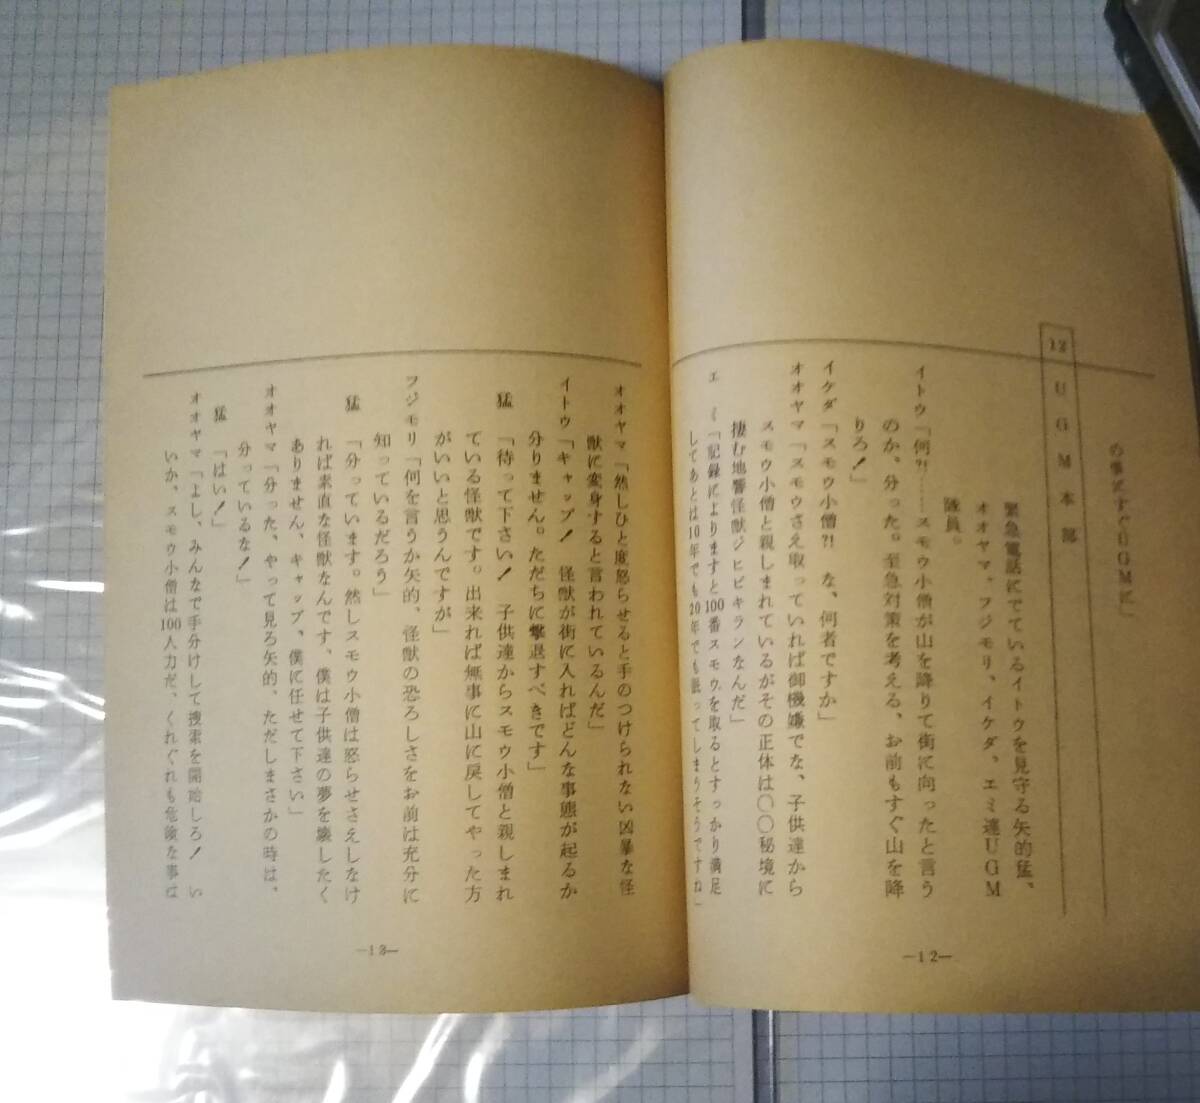 の事にすぐUGMに」
12 UGM本部
緊急電話にでているイトウを見守る矢的猛、
オオヤマ、フジモリ、イケダ、エミ達UGM
隊員。
イトウ「何?!……スモウ小僧が山を降りて街に向ったと言う
のか。分った。至急対策を考える、お前もすぐ山を降
りろ!」
イケダ「スモウ小僧?! な、何者ですか」
オオヤマ「スモウさえ取っていれば御機嫌でな、子供達から
スモウ小僧と親しまれているがその正体は〇〇秘境に
棲む地響怪獣ジヒビキランなんだ」
エミ「記録によりますと100番スモウを取るとすっかり満足
してあとは10年でも20年でも眠ってしまうそうですね」
—12—
オオヤマ「然しひと度怒らせると手のつけられない凶暴な怪
獣に変身すると言われているんだ」
イトウ「キャップ! 怪獣が街に入ればどんな事態が起るか
分りません。ただちに撃退すべきです」
猛 「待って下さい! 子供達からスモウ小僧と親しまれ
ている怪獣です。出来れば無事に山に戻してやった方
がいいと思うんですが」
フジモリ「何を言うか矢的、怪獣の恐ろしさをお前は充分に
知っているだろう」
猛 「分っています。然しスモウ小僧は怒らせさえしなけ
れば素直な怪獣なんです、僕は子供達の夢を壊したく
ありません、キャップ、僕に任せて下さい」
オオヤマ「分った、やって見ろ矢的、ただしまさかの時は、
分っているな!」
猛 「はい!」
オオヤマ「よし、みんなで手分けして捜索を開始しろ! い
いか、スモウ小僧は100人力だ、くれぐれも危険な事は
—13—